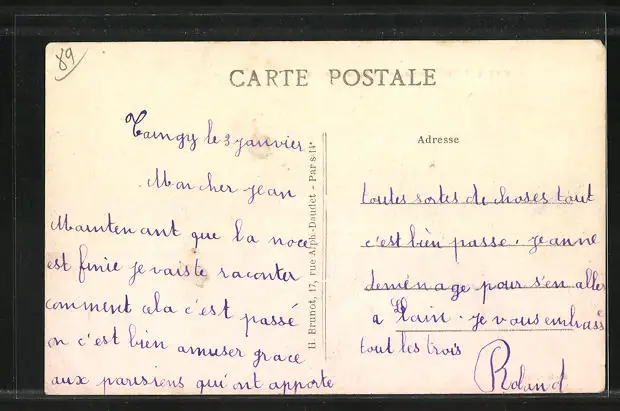 89
CARTE POSTALE
Taingy le 3 janvier
Mon cher jean
Maintenant que la noce
est finie je vaiste raconter
comment cela c'est passé
on c'est bien amuser grace
aux parisiens qui ont apporte
H. Brunot, 17, rue Alph-Daudet - Paris-14e
Adresse
toutes sortes de choses tout
c'est bien passe. jeanne
demènage pour s'en aller
a Lain. je vous embrass
tout les trois
Roland